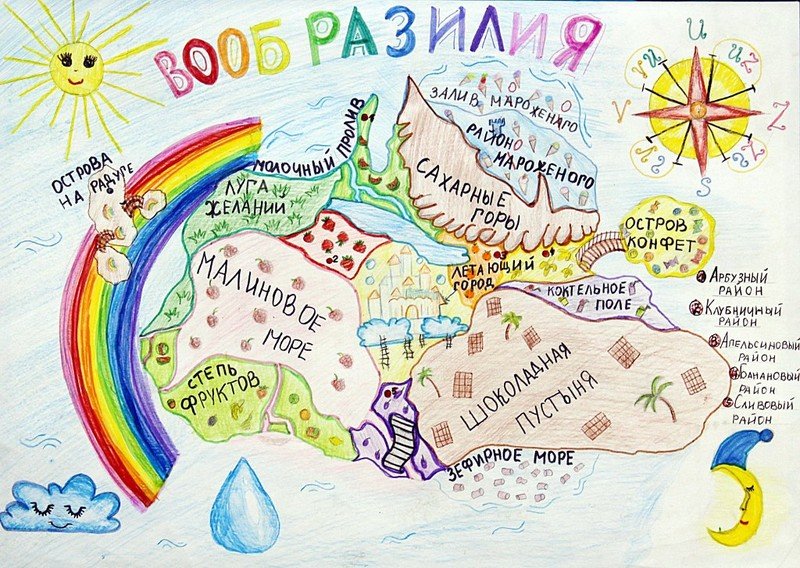 ВООБРАЗИЛИЯ
U
V
Z
S
ЗАЛИВ МАРОЖЕНАГО
РАЙОН
МАРОЖЕНОГО
САХАРНЫЕ
ГОРЫ
МОЛОЧНЫЙ ПРОЛИВ
ОСТРОВА
НА РАДУГЕ
ЛУГА
ЖЕЛАНИИ
ОСТРОВ
КОНФЕТ
ЛЕТАЮЩИЙ
ГОРОД
КОКТЕЛЬНОЕ
ПОЛЕ
МАЛИНОВОЕ
МОРЕ
2
АРБУЗНЫЙ
РАЙОН
КЛУБНИЧНЫЙ
РАЙОН
АПЕЛЬСИНОВЫЙ
РАЙОН
БАНАНОВЫЙ
РАЙОН
СЛИВОВЫЙ
РАЙОН
ШОКОЛАДНАЯ
ПУСТЫНЯ
СТЕПЬ
ФРУКТОВ
ЗЕФИРНОЕ МОРЕ